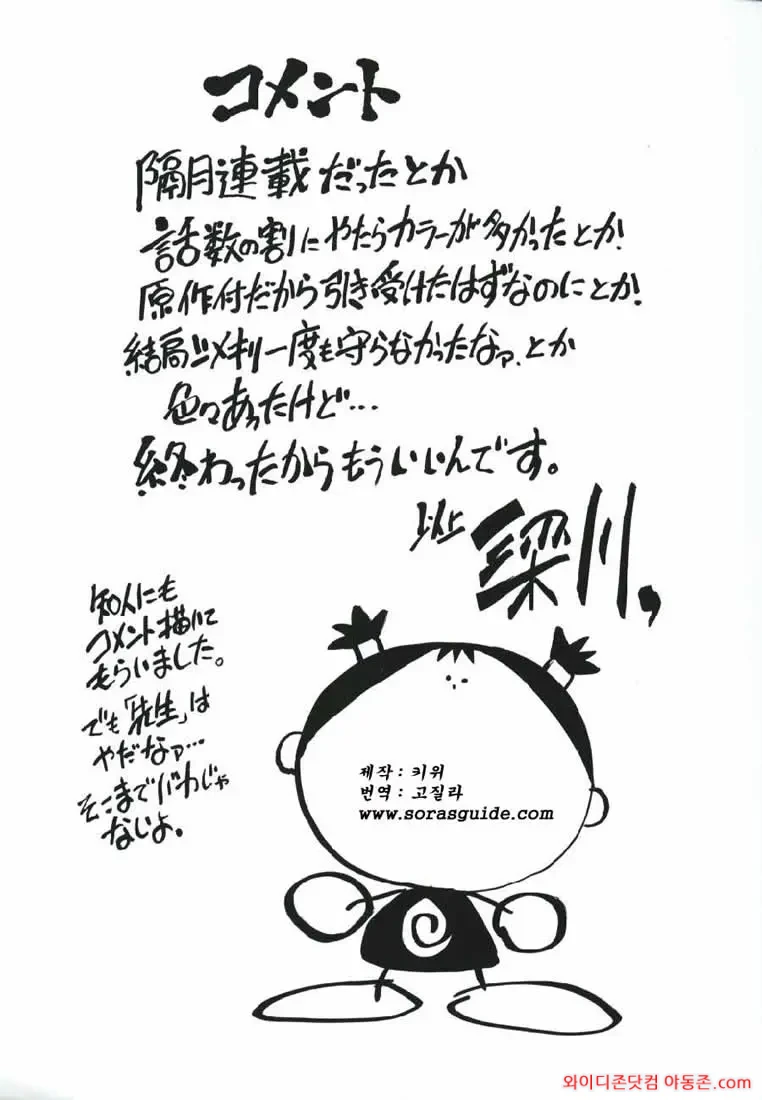 コメント
隔月連載だったとか
話数の割にやたらカラーが多かったとか!
原作付だから引き受けたはずなのにとか!
結局〆メキリ一度も守らなかったなァ、とか
色々あったけど…
終わったからもういいんです。
以上 深川,
知人にも
コメント描いて
もらいました。
でも「先生」は
やだなァ…
そこまでバカじゃ
ないよ。
제작 : 키위
번역 : 고질라
www.sorasguide.com
와이디존닷컴 야동존.com